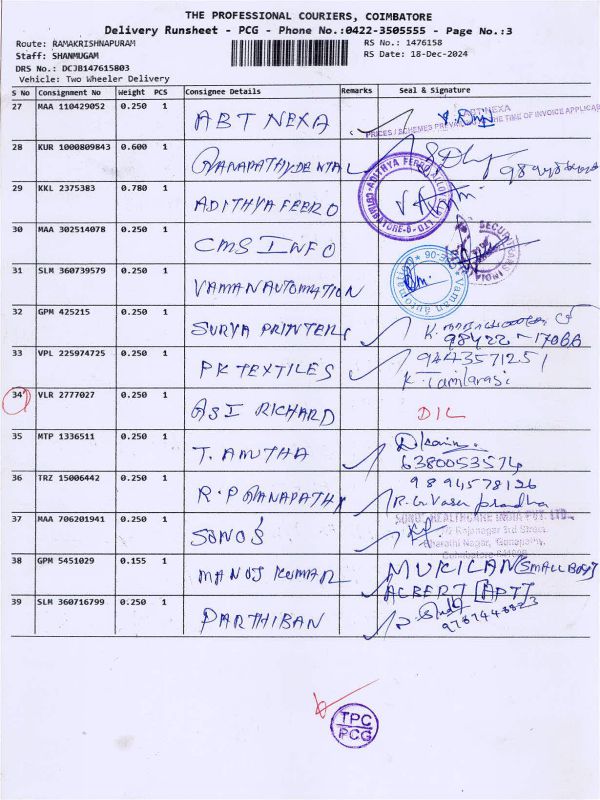 THE PROFESSIONAL COURIERS, COIMBATORE
Delivery Runsheet - PCG - Phone No.:0422-3505555 - Page No.:3
Route: RAMAKRISHNAPURAM
RS No.: 1476158
Staff: SHANMUGAM
RS Date: 18-Dec-2024
DRS No.: DCJB147615803
Vehicle: Two Wheeler Delivery
S No Consignment No Weight PCS Consignee Details Remarks Seal & Signature
27 MAA 110429052 0.250 1 ABT NEXA
ABT NEXA
PRICES / SCHEMES PREVAILING AT THE TIME OF INVOICE APPLICAB
28 KUR 1000809843 0.600 1 GANAPATHY DENTAL
29 KKL 2375383 0.780 1 ADITHYA FEERO
30 MAA 302514078 0.250 1 CMS INFO
SECURITRANS INDIA
31 SLM 360739579 0.250 1 VAMAN AUTOMATION
Vaman automation
32 GPM 425215 0.250 1 SURYA PRINTERS
98422-17066
33 VPL 225974725 0.250 1 PK TEXTILES 9443571251
K. Tamilarasi
34 VLR 2777027 0.250 1 ASI RICHARD DIL
35 MTP 1336511 0.250 1 T. AMUTHA
6380053574
36 TRZ 15006442 0.250 1 R.P GANAPATHY 9894578126
37 MAA 706201941 0.250 1 SONO'S
SONO'S HEALTHCARE INDIA PVT. LTD.
Rajanagar 3rd Street
Bharathi Nagar, Ganapathy,
38 GPM 5451029 0.155 1 MANOJ KUMAR MUKILAN (SMALL BOY)
ALBERT [APT]
39 SLM 360716799 0.250 1 PARTHIBAN
9787448823
TPC
PCG